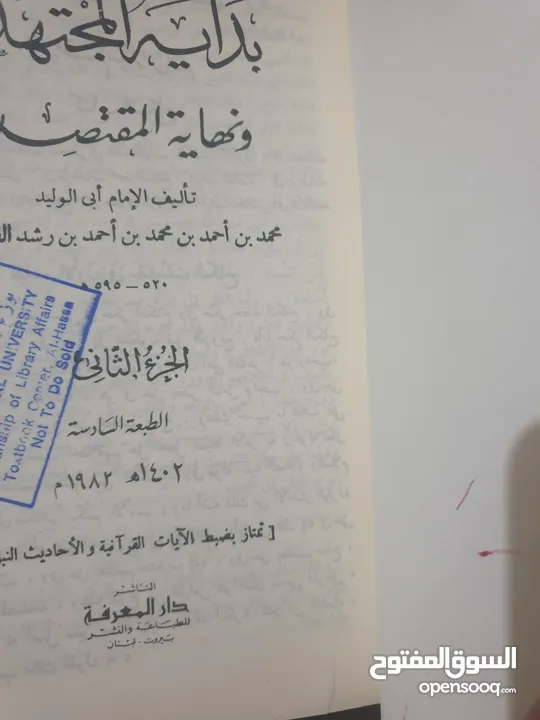 بداية المجتهد
ونهاية المقتصد
تأليف الإمام أبى الوليد
محمد بن أحمد بن محمد بن أحمد بن رشد
٥٢٠ - ٥٩٥ هـ
UNIVERSITY
of Library Affairs
Textbook Center, Al-Hassa
Not To Be Sold
الجزء الثاني
الطبعة السادسة
١٤٠٢هـ ١٩٨٢م
[ تمتاز بضبط الآيات القرآنية والأحاديث
الناشر
دار المعرفة
للطباعة والنشر
بيروت - لبنان
السوق المفتوح
opensooq.com